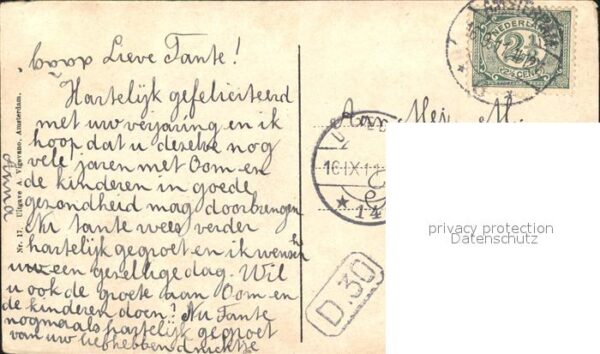 Lieve Tante!
Hartelijk gefeliciteerd
met uw verjaring en ik
hoop dat u deselve nog
vele jaren met Oom en
de kinderen in goede
gezondheid mag doorbrengen
Nu tante wees verder
hartelijk gegroet en ik wensch
uw een gesellige dag. Wil
u ook de groete aan Oom en
de kinderen doen? Nu Tante
nogmaals hartelijk gegroet
van uw liefhebbend nichtje
Anna
Nr. 17. Uitgave A. Vigevano, Amsterdam.
AMSTERDAM
NEDERLAND
2½
Aan Mej
16 IX 1
14
D.30
privacy protection
Datenschutz